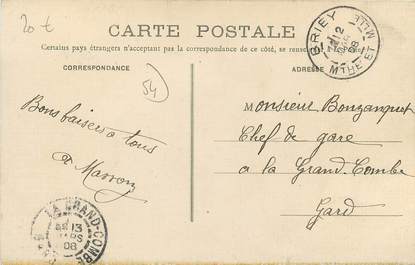 20 €
CARTE POSTALE
Certains pays étrangers n'acceptant pas la correspondance de ce côté, se
CORRESPONDANCE
ADRESSE
BRIEY
12
08
MTHE ET MLLE
54
Bons baisers a tous
Masson
Monsieur Bonzanquet
Chef de gare
a la Grand-Combe
Gard
LA GRAND-COMBE
13
MARS
08